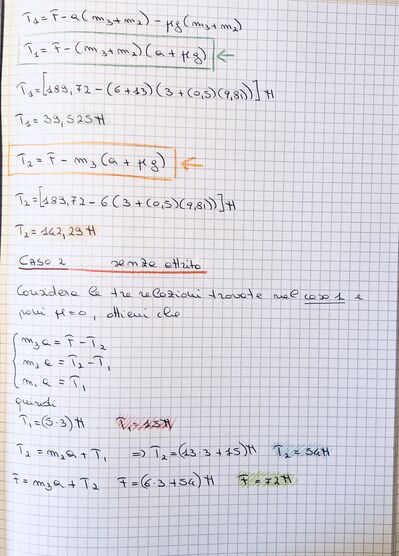 T₁ = F - a(m₃+m₂) - μg(m₃+m₂)
T₁ = F - (m₃+m₂)(a + μg)
T₁ = [189,72 - (6+13)(3 + (0,5)(9,81))] N
T₁ = 39,525 N
T₂ = F - m₃(a + μg)
T₂ = [189,72 - 6(3 + (0,5)(9,81))] N
T₂ = 142,29 N
CASO 2 senza attrito
Considera le tre relazioni trovate nel caso 1 e
poni μ=0, ottieni che
m₃a = F - T₂
m₂a = T₂ - T₁
m₁a = T₁
quindi
T₁ = (5·3) N T₁ = 15 N
T₂ = m₂a + T₁ ⇒ T₂ = (13·3 + 15) N T₂ = 54 N
F = m₃a + T₂ F = (6·3 + 54) N F = 72 N